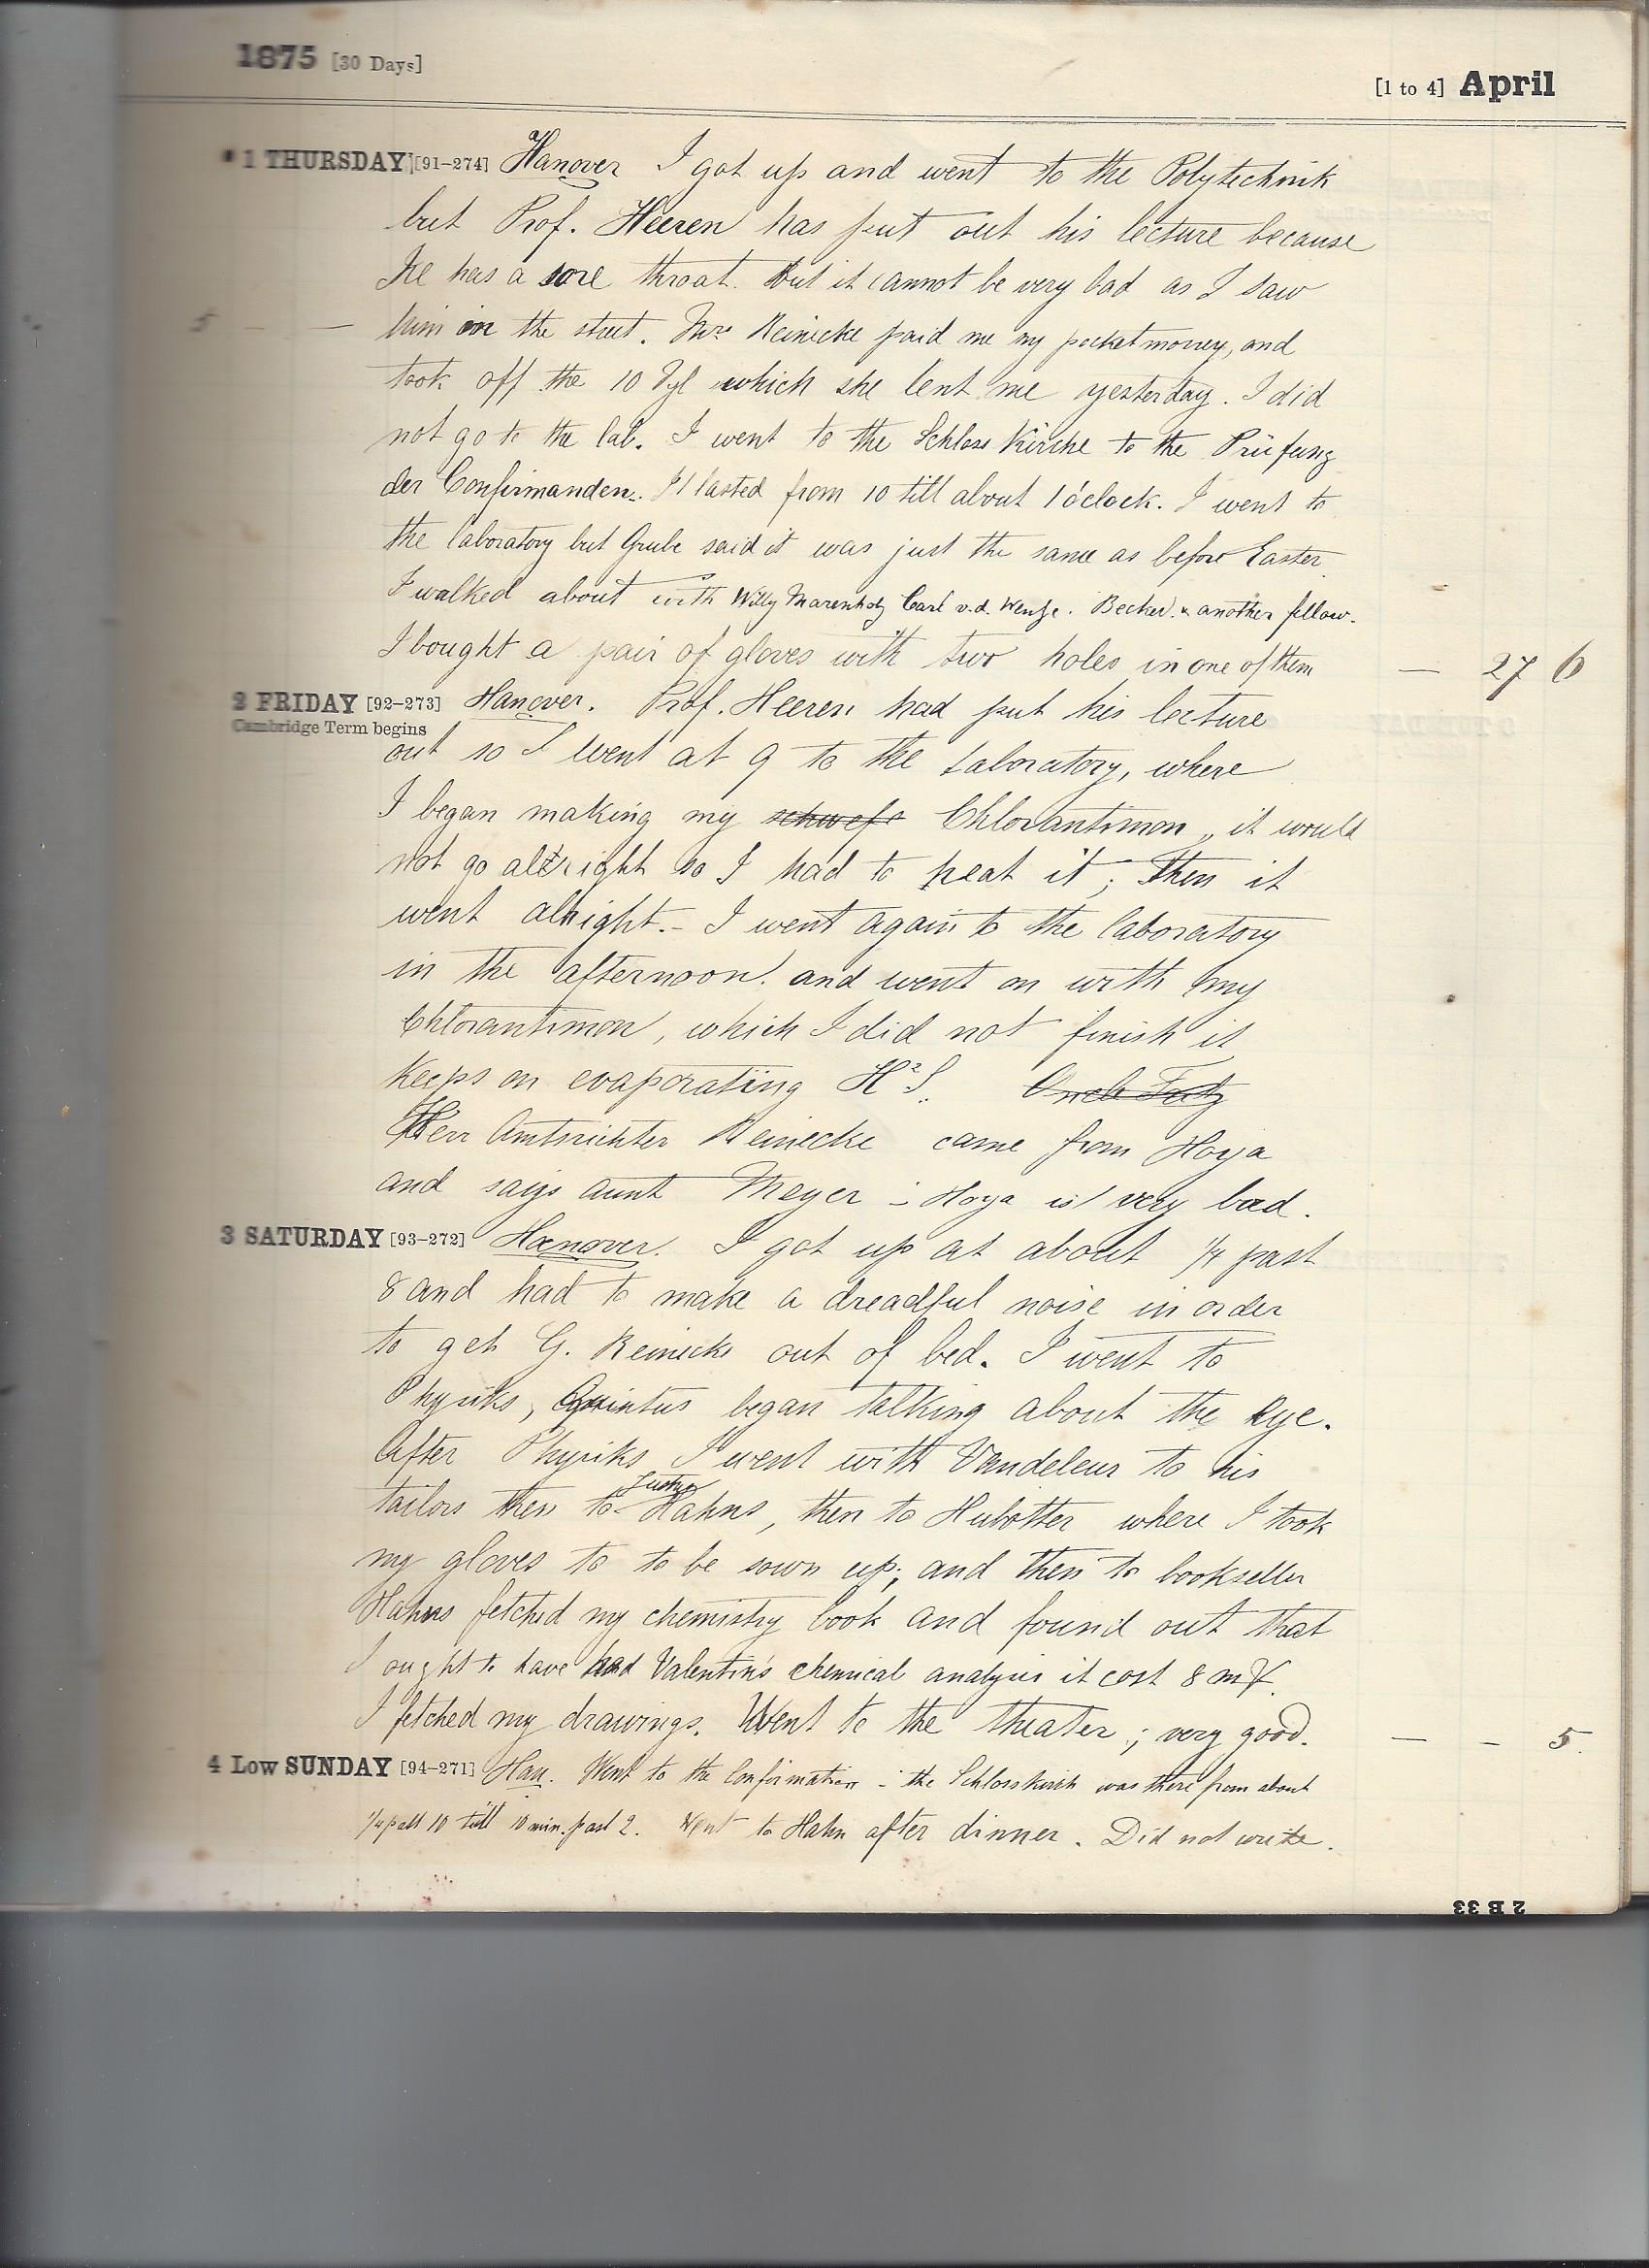 1875 [30 Days]
[1 to 4] April
1 THURSDAY [91-274] Hanover I got up and went to the Polytechnik
but Prof. Heeren has put out his lecture because
He has a sore throat. But it cannot be very bad as I saw
5 — — him in the street. Mrs Reinicke paid me my pocketmoney, and
took off the 10 which she lent me yesterday. I did
not go to the lab. I went to the Schloss Kirche to the Prüfung
der Confirmanden. It lasted from 10 till about 1 o'clock. I went to
the laboratory but Grube said it was just the same as before Easter.
I walked about with Willy Marenholz Carl v.d. Wense. Becker. & another fellow.
I bought a pair of gloves with two holes in one of them — 27 6
2 FRIDAY [92-273] Hanover. Prof. Heeren had put his lecture
Cambridge Term begins
out so I went at 9 to the Laboratory, where
I began making my schwefe Chlorantimon, it would
not go allright so I had to heat it; then it
went alright.- I went again to the laboratory
in the afternoon. and went on with my
Chlorantimon, which I did not finish it
keeps on evaporating H²S. Uncle Fritz
Herr Amtsrichter Reinecke came from Hoya
and says aunt Meyer - Hoya is very bad.
3 SATURDAY [93-272] Hanover. I got up at about 1/4 past
8 and had to make a dreadful noise in order
to get G. Reinicke out of bed. I went to
Physiks, Quintus began talking about the Eye.
After Physiks I went with Vandeleur to his
tailors then to Hahns, then to Hubotter where I took
my gloves to to be sown up; and then to bookseller
Hahns fetched my chemistry book and found out that
I ought to have had Valentin's chemical analysis it cost 8 mk.
I fetched my drawings. Went to the theater; very good. — - 5.
4 Low SUNDAY [94-271] Han. Went to the Confirmation - the Schlosskirch was there from about
1/4 past 10 till 10 min. past 2. Went to Hahn after dinner. Did not write.
2 B 33